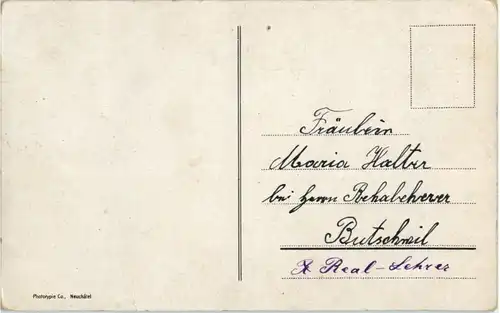 Fräulein
Maria Halter
bei Herrn
Butschwil
Real-Lehrer
Phototypie Co., Neuchâtel